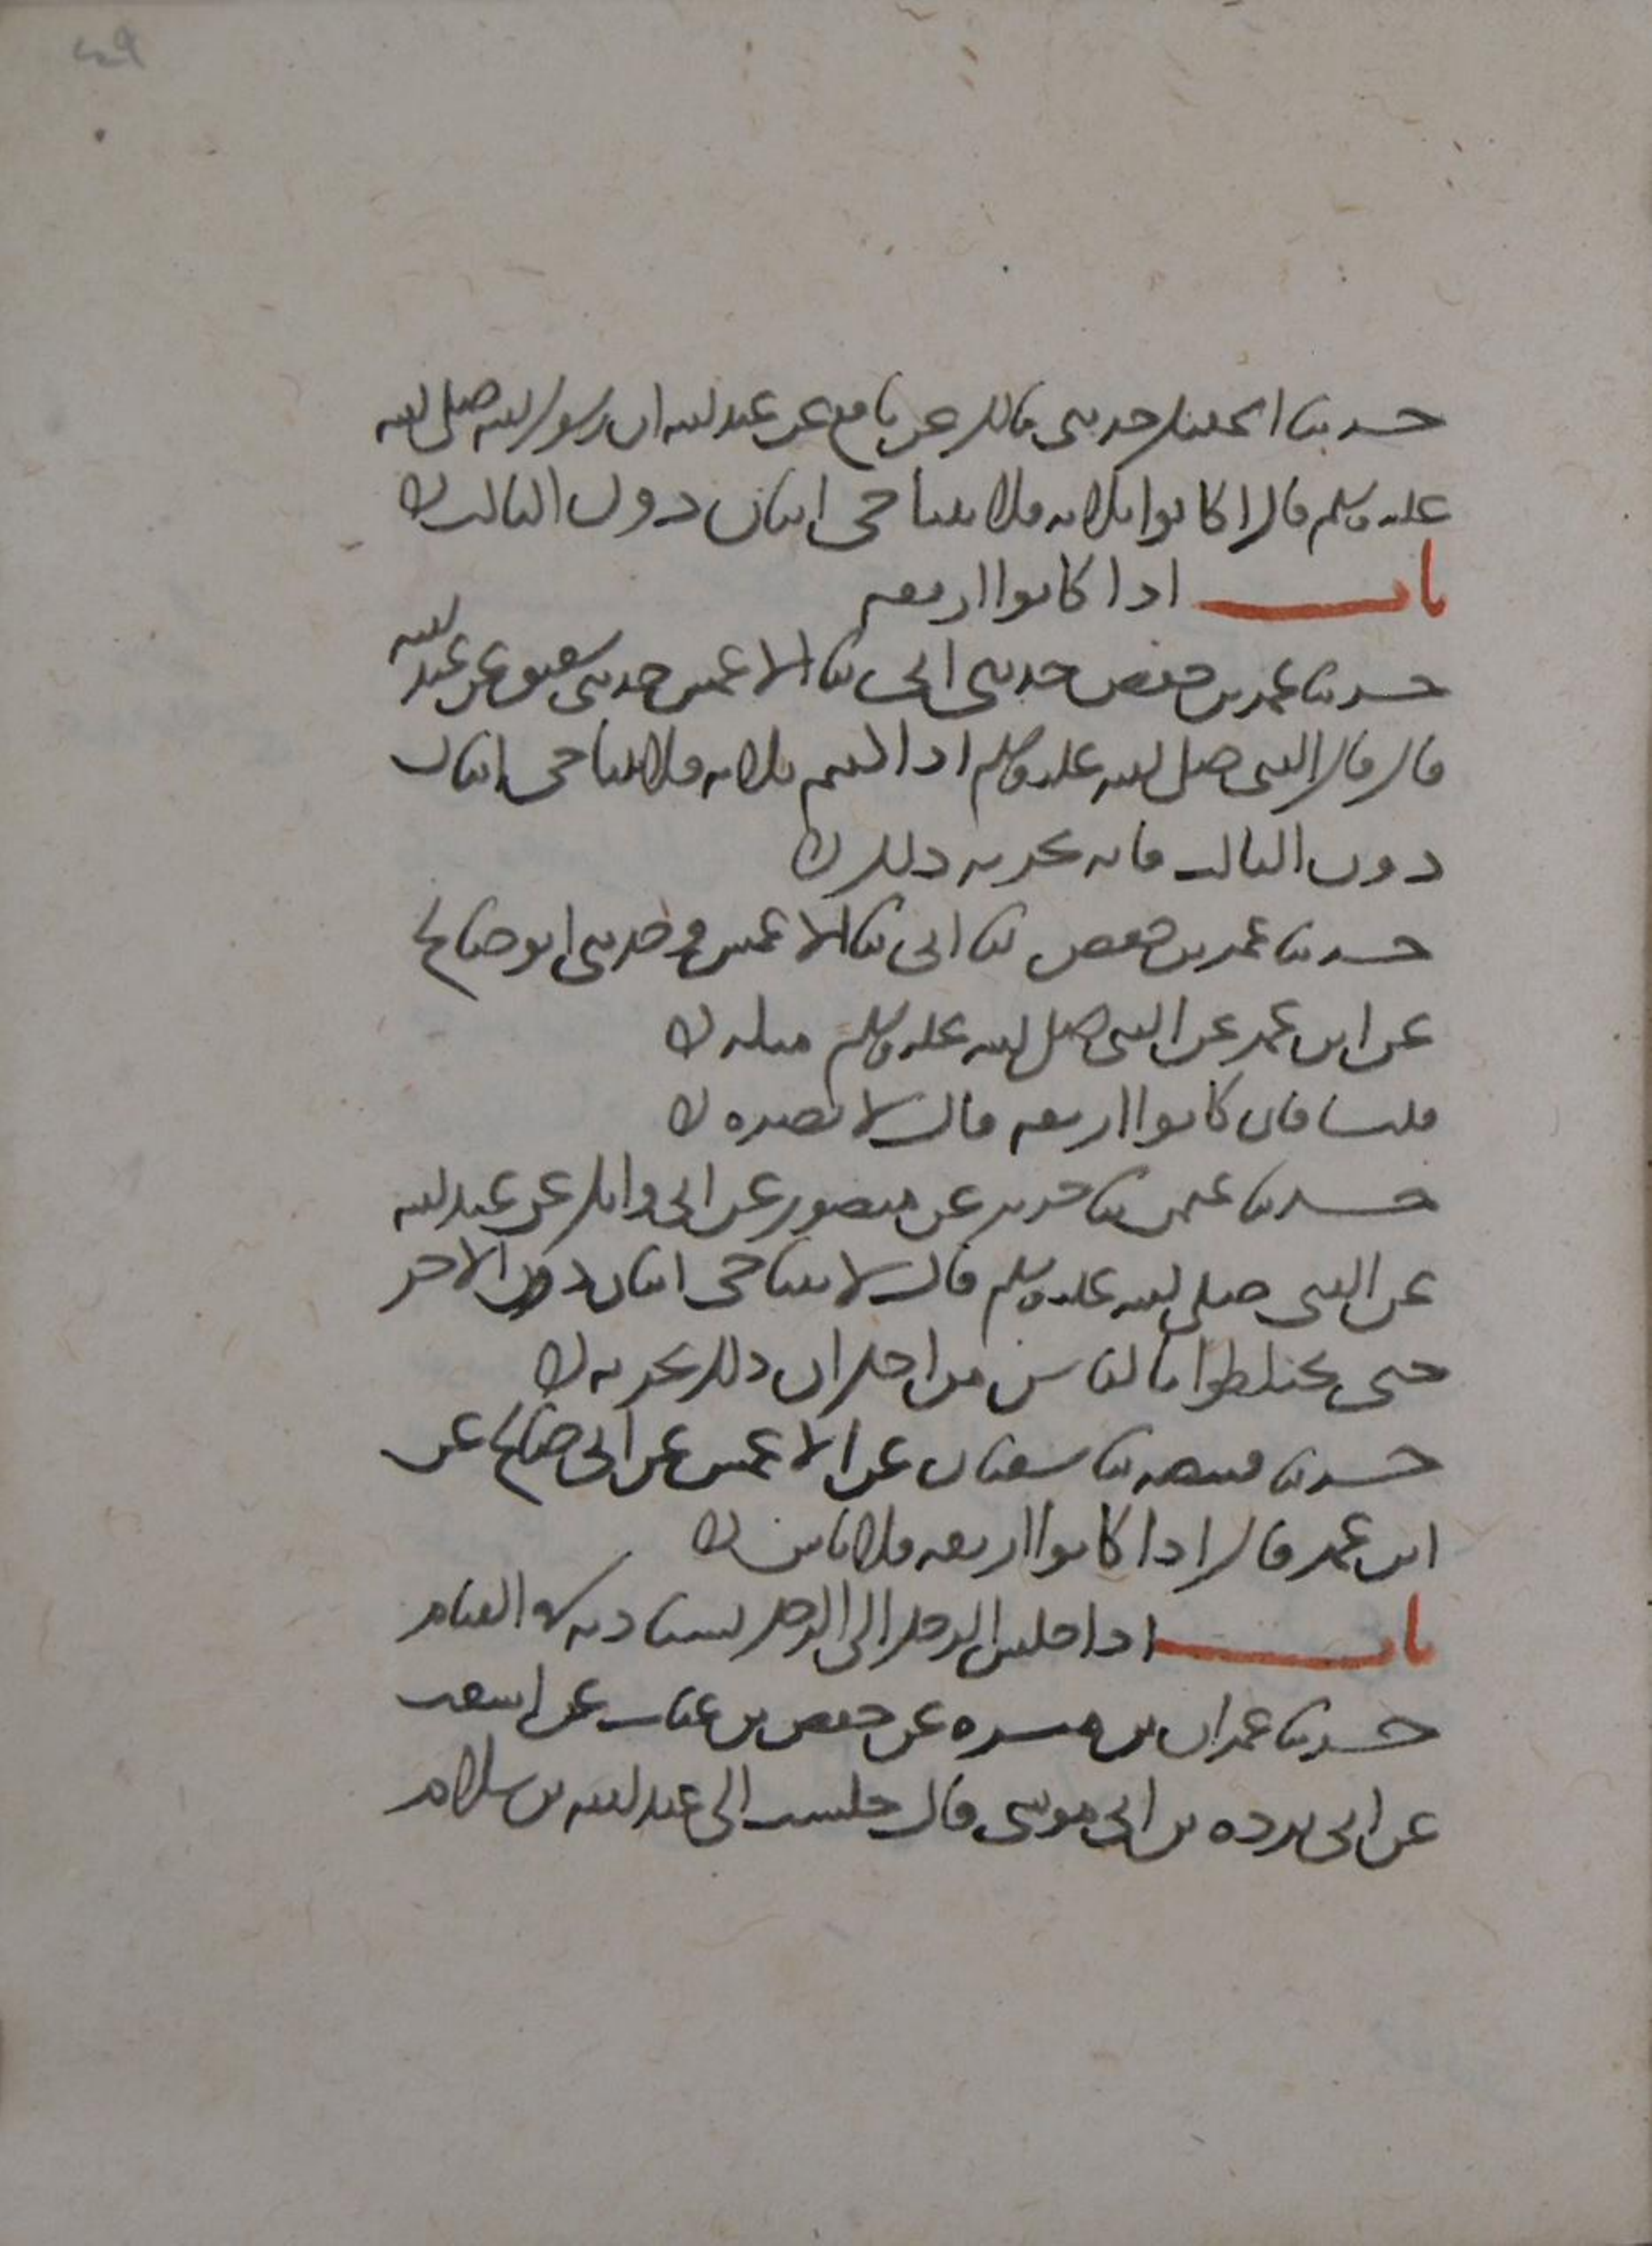 حدثنا اسمعيل حدثني مالك عن نافع عن عبد الله ان رسول الله صلى الله
عليه وسلم قال اذا كانوا ثلاثه فلا يتناجى اثنان دون الثالث
باب اذا كانوا اربعه
حدثنا عمر بن حفص حدثني ابي ثنا الاعمش حدثني شقيق عن عبد الله
قال قال النبي صلى الله عليه وسلم اذا كنتم ثلاثه فلا يتناجى اثنان
دون الثالث فانه يحزنه ذلك
حدثنا عمر بن حفص ثنا ابي ثنا الاعمش وحدثني ابو صالح
عن ابن عمر عن النبي صلى الله عليه وسلم مثله
قلنا فان كانوا اربعه قال لا يضره
حدثنا عثمن ثنا جرير عن منصور عن ابي وائل عن عبد الله
عن النبي صلى الله عليه وسلم قال لا يتناجى اثنان دون الاخر
حتى يختلطوا بالناس من اجل ان ذلك يحزنه
حدثنا قبيصه ثنا سفيان عن الاعمش عن ابي صالح عن
ابن عمر قال اذا كانوا اربعه فلا باس
باب اذا جلس الرجل الى الرجل يستاذنه في القيام
حدثنا عمران بن ميسره عن حفص بن غياث عن اشعث
عن ابي برده بن ابي موسى قال جلست الى عبد الله بن سلام